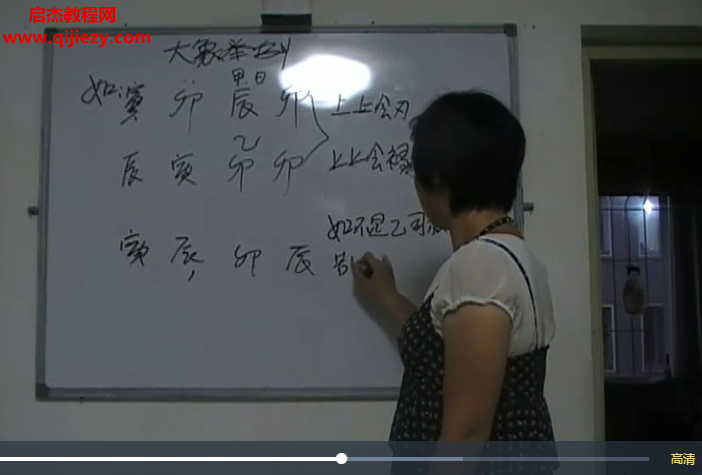 启杰教程网
www.qijiezy.com
大象举例
甲日
如:寅 卯 辰 卯 上上会刃
乙
辰 寅 卯 卯 上上会禄
寅 辰, 卯 辰 如不是乙可
高清